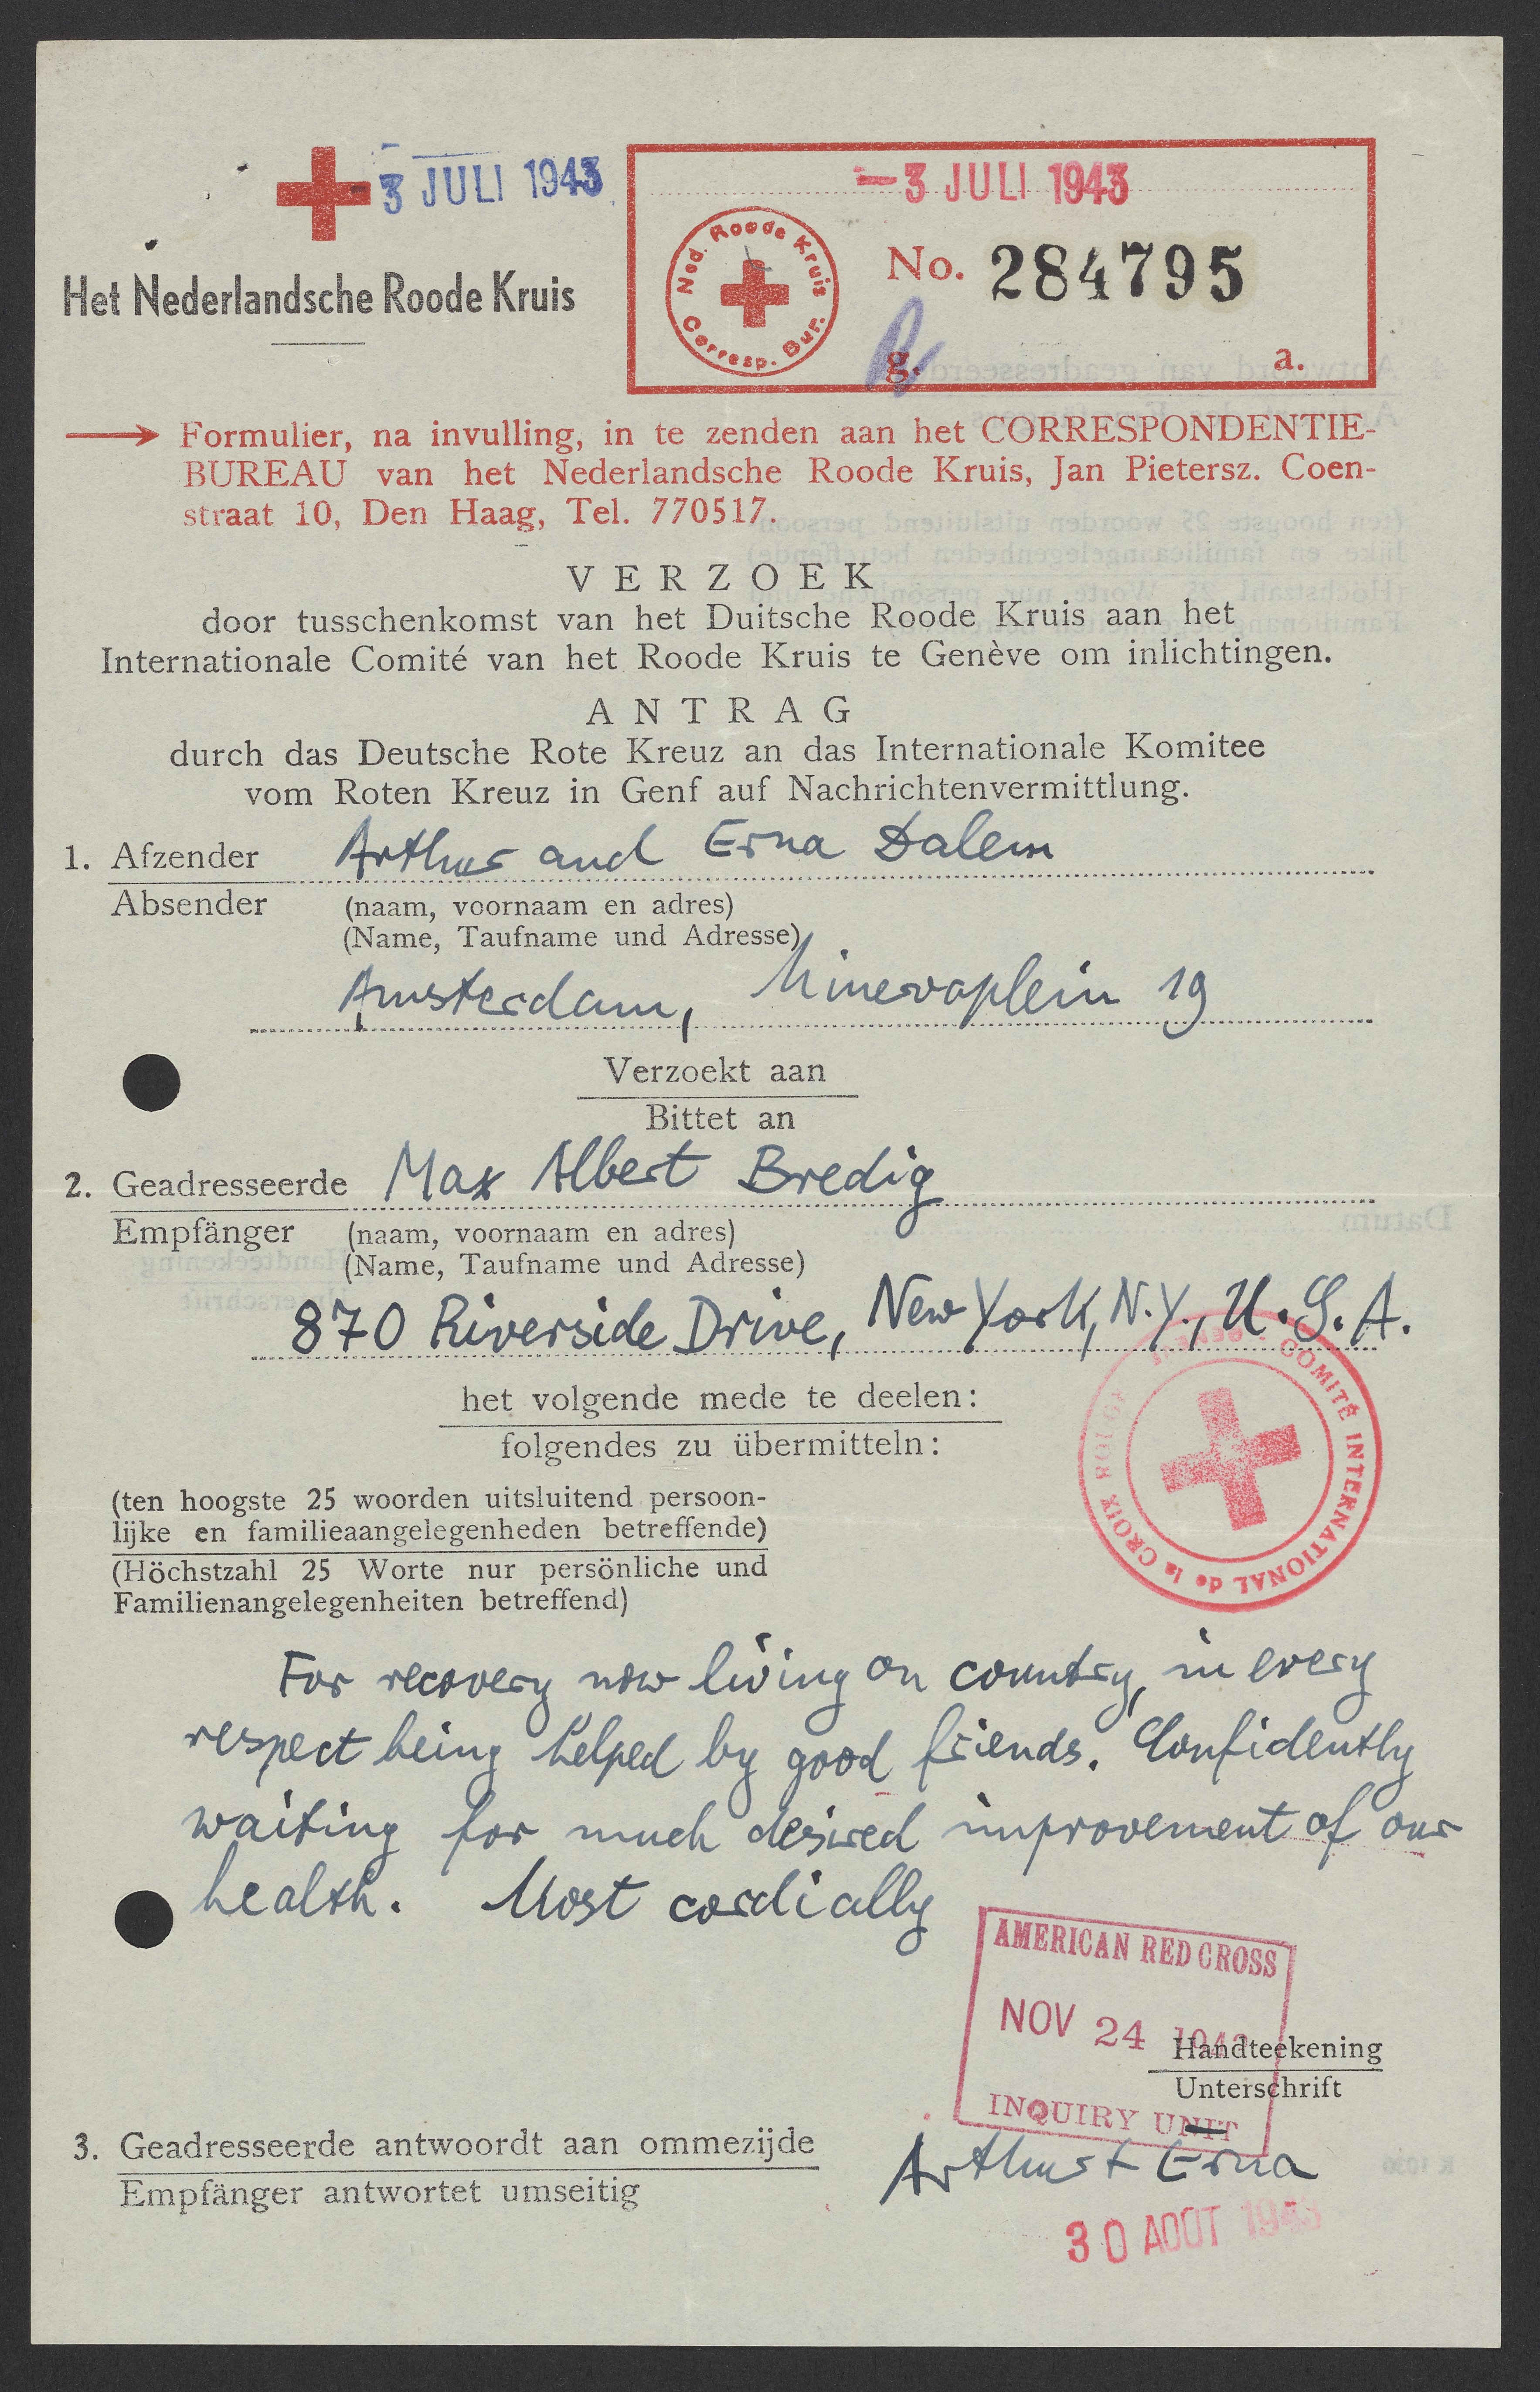 3 JULI 1943
— 3 JULI 1943
Ned. Roode Kruis
Corresp. Bur.
No. 284795
g. a.
Het Nederlandsche Roode Kruis
Formulier, na invulling, in te zenden aan het CORRESPONDENTIE-
BUREAU van het Nederlandsche Roode Kruis, Jan Pietersz. Coen-
straat 10, Den Haag, Tel. 770517.
VERZOEK
door tusschenkomst van het Duitsche Roode Kruis aan het
Internationale Comité van het Roode Kruis te Genève om inlichtingen.
ANTRAG
durch das Deutsche Rote Kreuz an das Internationale Komitee
vom Roten Kreuz in Genf auf Nachrichtenvermittlung.
1. Afzender Arthur and Erna Dalem
Absender (naam, voornaam en adres)
(Name, Taufname und Adresse)
Amsterdam, Minervaplein 19
Verzoekt aan
Bittet an
2. Geadresseerde Max Albert Bredig
Empfänger (naam, voornaam en adres)
(Name, Taufname und Adresse)
870 Riverside Drive, New York, N.Y., U.S.A.
COMITÉ INTERNATIONAL de la CROIX ROUGE
het volgende mede te deelen:
folgendes zu übermitteln:
(ten hoogste 25 woorden uitsluitend persoon-
lijke en familieaangelegenheden betreffende)
(Höchstzahl 25 Worte nur persönliche und
Familienangelegenheiten betreffend)
For recovery now living on country, in every
respect being helped by good friends. Confidently
waiting for much desired improvement of our
health. Most cordially
AMERICAN RED CROSS
NOV 24
INQUIRY UNIT
Handteekening
Unterschrift
3. Geadresseerde antwoordt aan ommezijde
Empfänger antwortet umseitig
Arthur + Erna
30 AOUT 1943